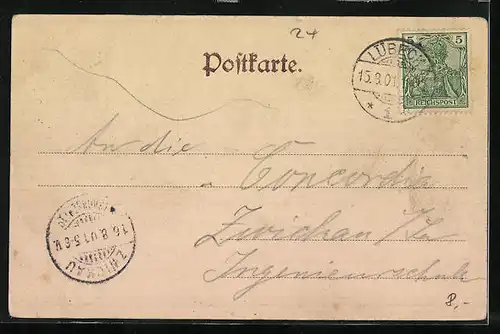 24
Postkarte.
LÜBECK
15.8.01
* 1
5
REICHSPOST
An die
Concordia
Zwickau i/Sa
Ingenieurschule
16.8.01.5-6V.
ZWICKAU
8,-